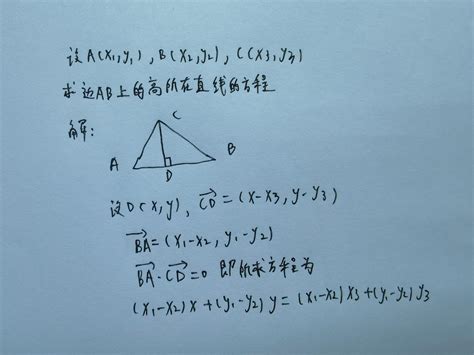 设A(x₁,y₁),B(x₂,y₂),C(x₃,y₃)
求边AB上的高所在直线的方程
解:
C
A
B
D
设D(x,y),$\overrightarrow{CD}$=(x-x₃,y-y₃)
$\overrightarrow{BA}$=(x₁-x₂,y₁-y₂)
$\overrightarrow{BA}$·$\overrightarrow{CD}$=0 即所求方程为
(x₁-x₂)x+(y₁-y₂)y=(x₁-x₂)x₃+(y₁-y₂)y₃